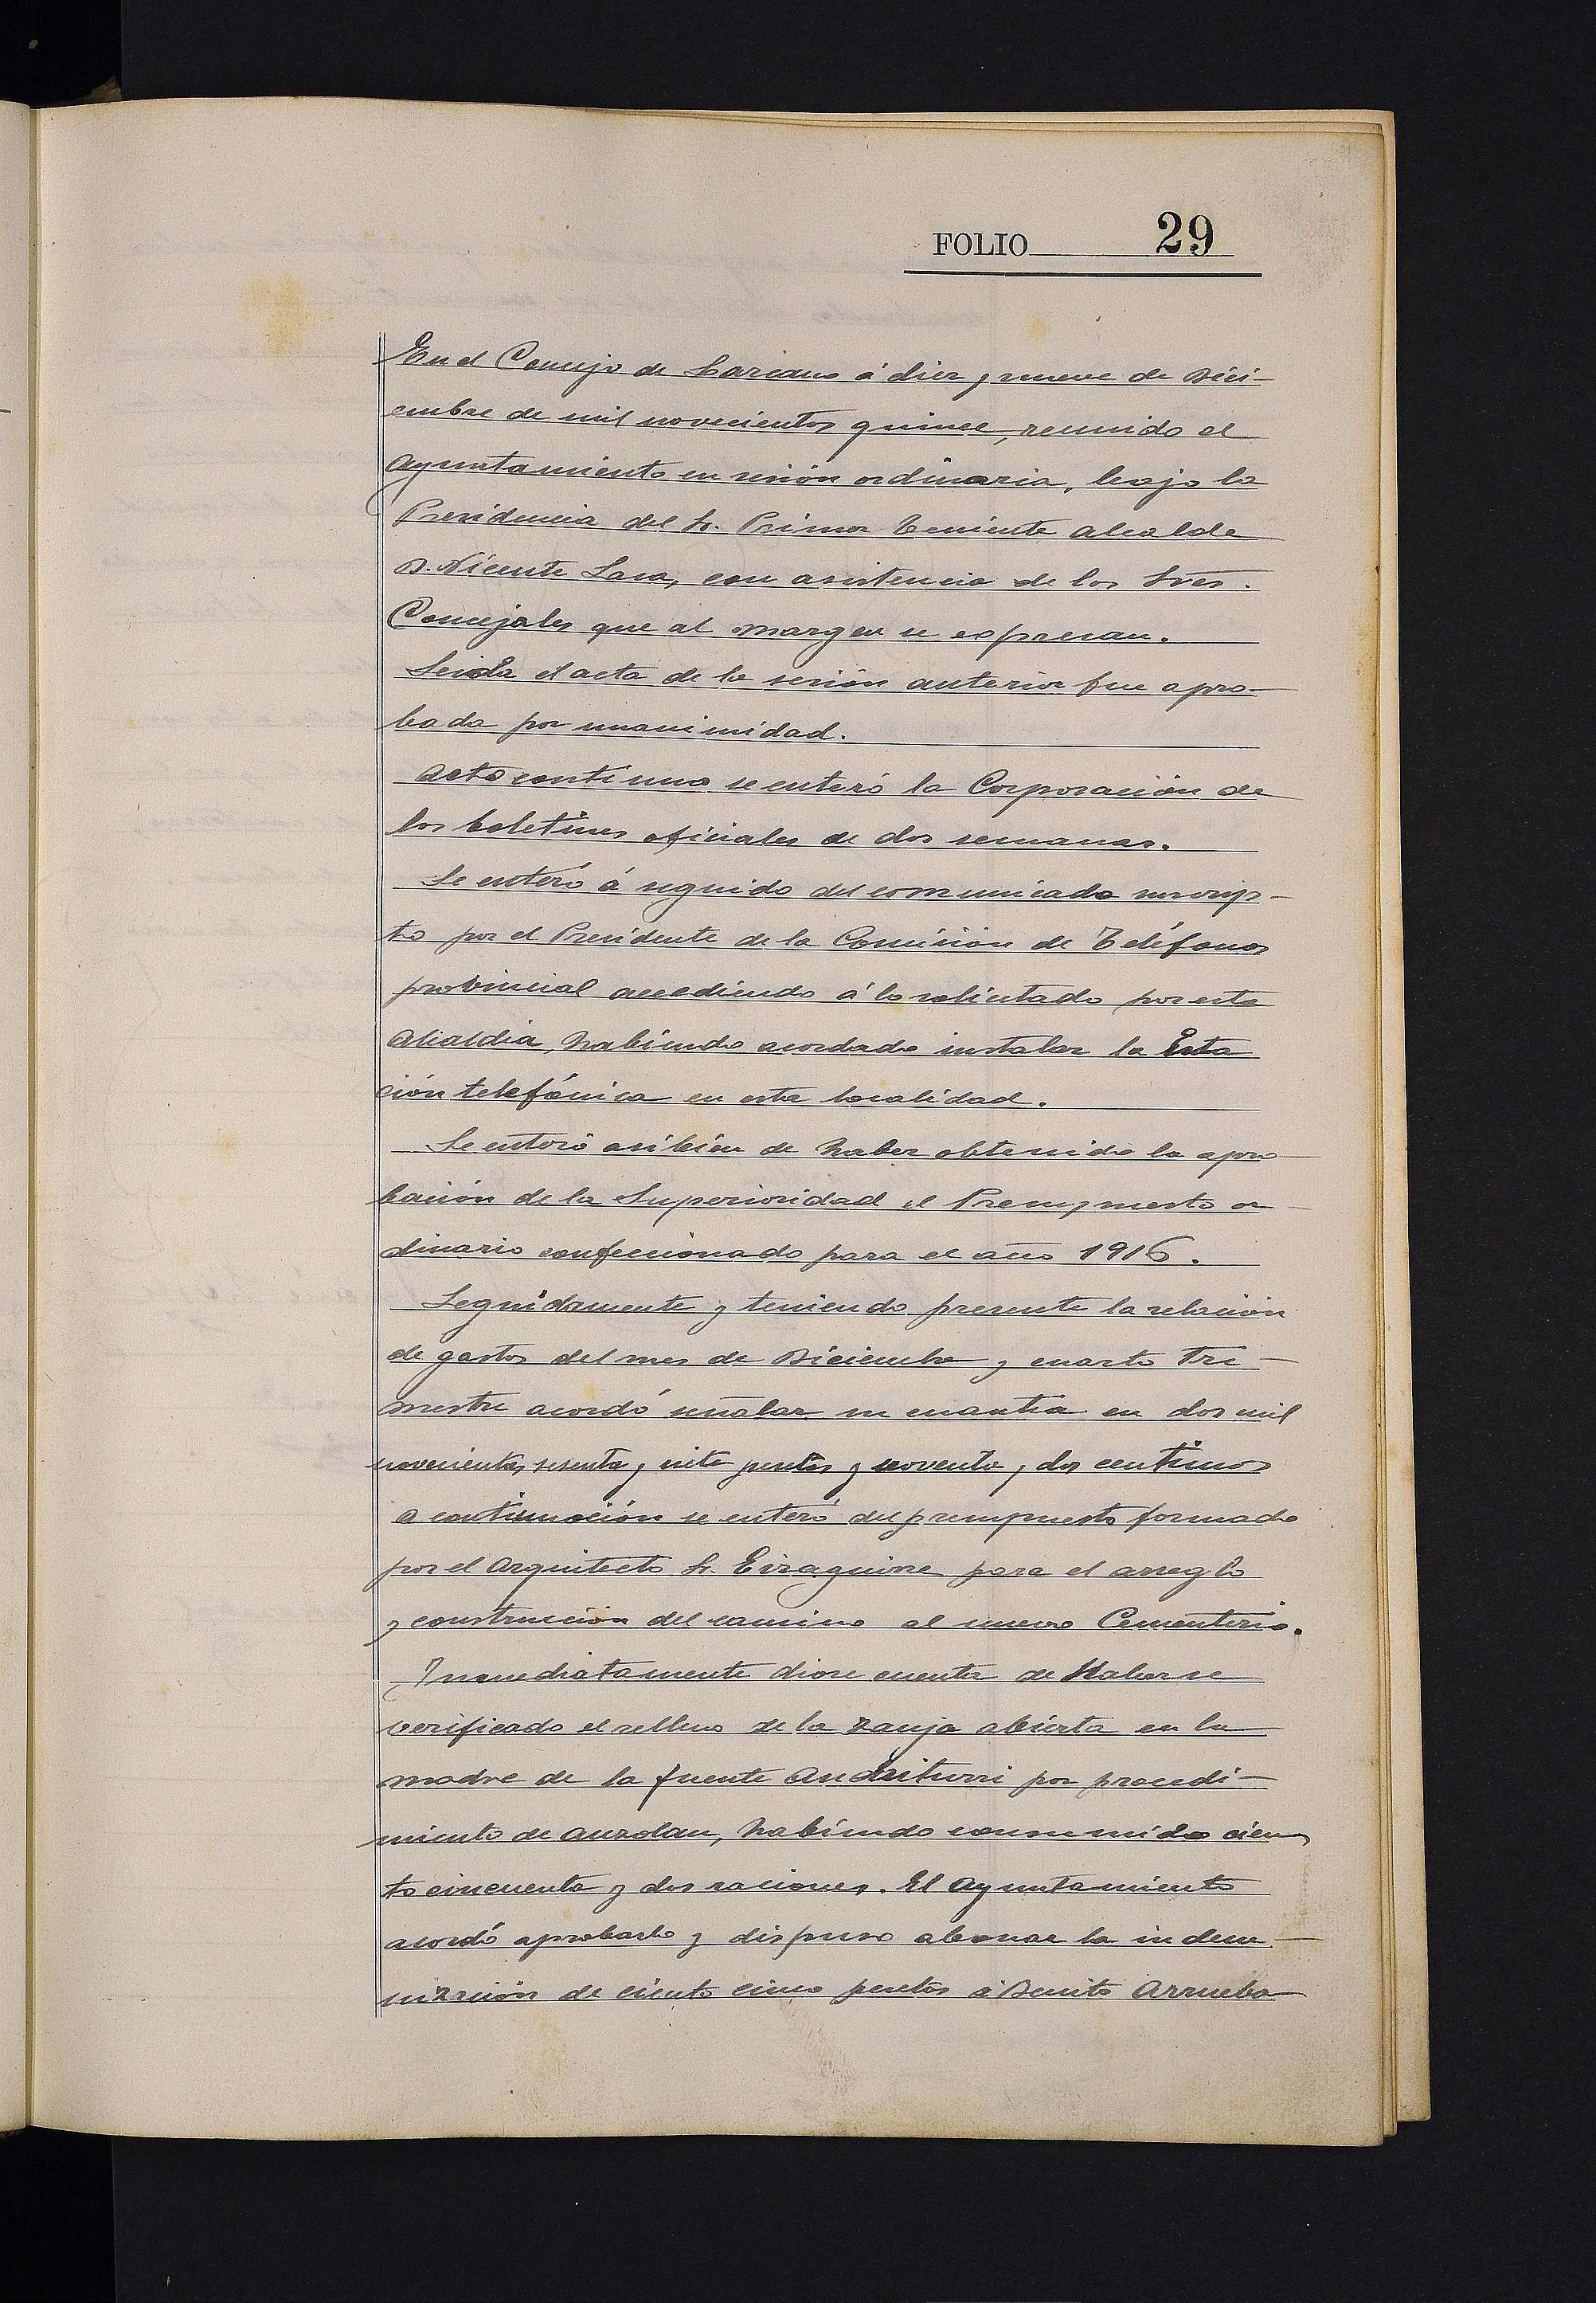 FOLIO 29
En el Concejo de Lazcano á diez y nueve de Dici-
embre de mil novecientos quince, reunido el
Ayuntamiento en sesión ordinaria, bajo la
Presidencia del Sr. Primer Teniente Alcalde
D. Vicente Lasa, con asistencia de los Sres.
Concejales que al margen se expresan.
Leida el acta de la sesión anterior fue apro-
bada por unanimidad.
Acto continuo se enteró la Corporación de
los boletines oficiales de dos semanas.
Se enteró á seguido del comunicado suscrip-
to por el Presidente de la Comisión de Teléfonos
provincial accediendo á lo solicitado por esta
Alcaldia, habiendo acordado instalar la Esta
ción telefónica en esta localidad.
Se enteró asibien de haber obtenido la apro-
bación de la Superioridad el Presupuesto or-
dinario confeccionado para el año 1916.
Seguidamente y teniendo presente la relación
de gastos del mes de Diciembre y cuarto Tri-
mestre acordó señalar su cuantia en dos mil
novecientas sesenta y siete pesetas y noventa y dos centimos
A continuación se enteró del presupuesto formado
por el Arquitecto Sr. Eizaguirre para el arreglo
y construcción del camino al nuevo Cementerio.
Inmediatamente diose cuenta de Haberse
verificado el relleno de la zanja abierta en la
madre de la fuente Andriturri por procedi-
miento de auzolan, habiendo consumido cien
to cincuenta y dos raciones. El Ayuntamiento
acordó aprobarlo y dispuso abonar la indem-
nización de ciento cinco pesetas á Benito Arrueba